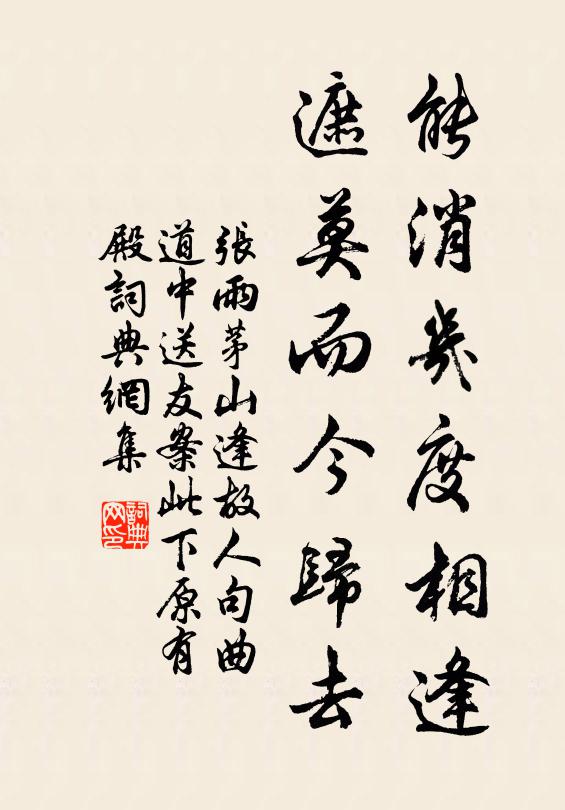 能消幾度相逢
遮莫而今歸去
張雨茅山逢故人句曲
道中送友案此下原有
殿詞典網集
詞典网印